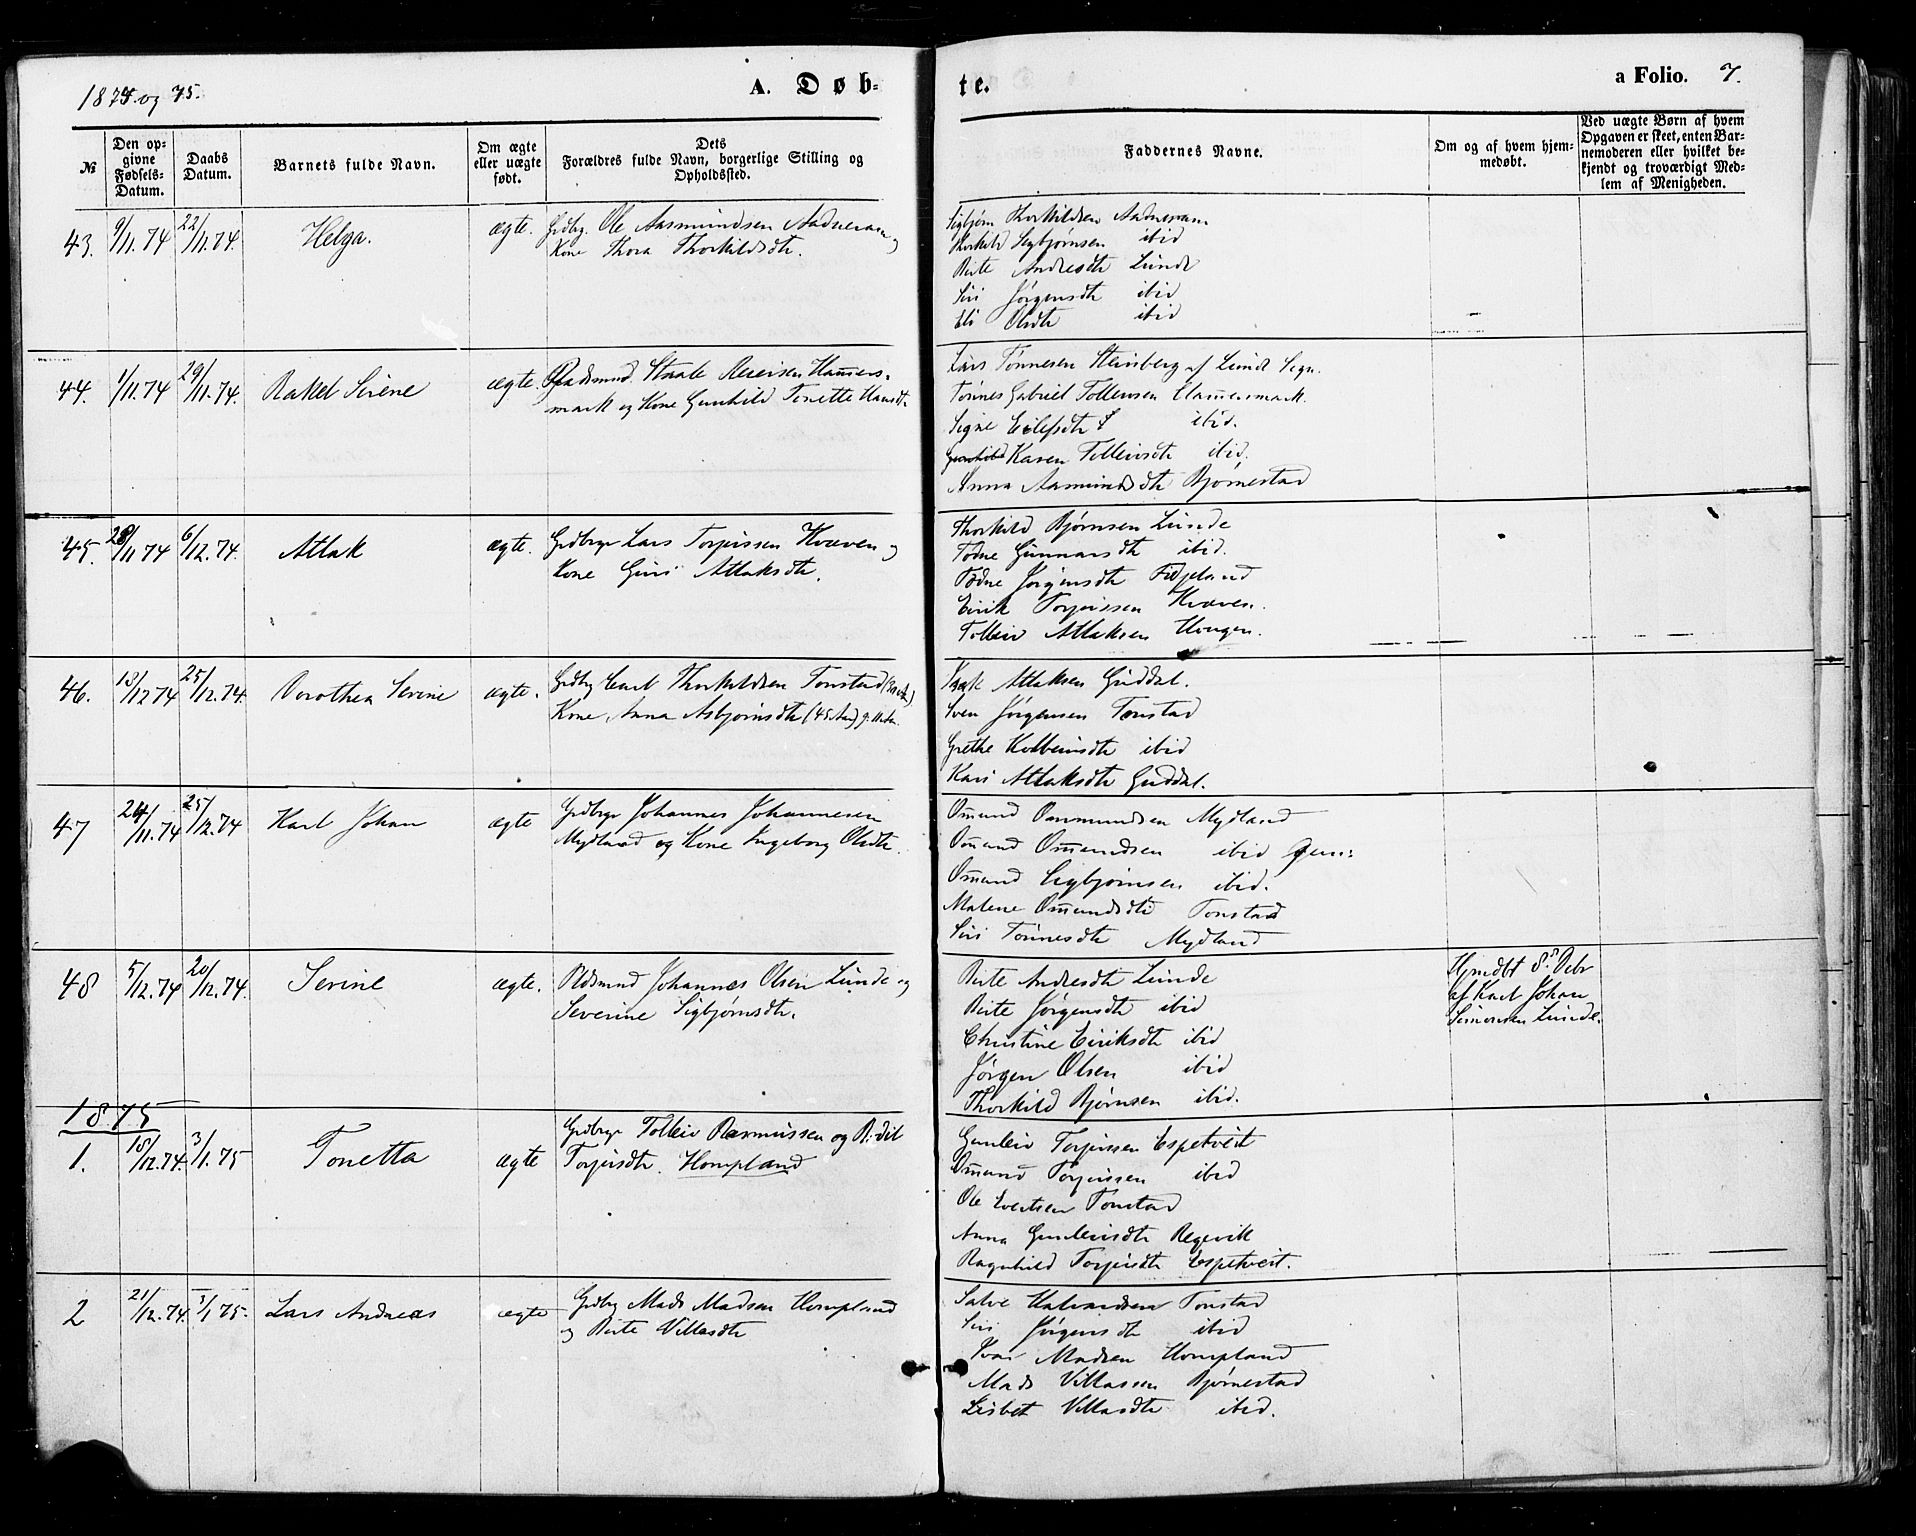 1874 og 75.
A. Døb-
te.
a Folio. 7.
№
Den op-
givne
Fødsels-
Datum.
Daabs
Datum.
Barnets fulde Navn.
Om ægte
eller uægte
født.
Dets
Forældres fulde Navn, borgerlige Stilling og
Opholdssted.
Faddernes Navne.
Om og af hvem hjem-
medøbt.
Ved uægte Børn af hvem
Opgaven er skeet, enten Bar-
nemoderen eller hvilket be-
kjendt og troværdigt Med-
lem af Menigheden.
43. 9/11.74 22/11.74. Helga. ægte. Grdbrg. Ole Aasmundsen Aadneram og
Kone Thora Thorkildsdtr.
Sigbjørn Thorkildsen Aadneram
Thorkild Sigbjørnsen ibid
Berte Andresdtr Lunde
Siri Jørgensdtr ibid
Eli Olsdtr ibid
44. 1/11.74 29/11.74. Rakel Serine ægte. Pladsmnd. Staale Reiersen Hamers-
mark og Kone Gunhild Tonette Hansdtr
Lars Tønnesen Steinberg af Lunde Sogn.
Tønnes Gabriel Tolleivsen Hamersmark.
Signe Eilefsdtr ibid.
Karen Tolleivsdtr ibid.
Anna Aasmundsdtr Bjørnestad
45. 28/11 74 6/12.74. Atlak ægte. Grdbrgr Lars Torjussen Kvæven og
Kone Guri Atlaksdtr.
Thorkild Bjørnsen Lunde
Todne Gunnarsdtr ibid.
Todne Jørgensdtr Fidjeland
Eirik Torjussen Kvæven.
Tolleiv Atlaksen Hougen.
46. 13/12 74 25/12.74. Dorothea Serine ægte. Grdbrg Carl Thorkildsen Tonstad
Kone, Anna Asbjørnsdtr (45 Aar)
Atlaksen Guddal.
Sven Jørgensen Tonstad
Grethe Kolbeinsdtr ibid
Kari Atlaksdtr Guddal.
47 24/11.74 25/12.74 Karl Johan ægte Grdbrgr Johannes Johannesen
Mydland og Kone Ingeborg Olsdtr.
Omund Omundsen Mydland
Omund Omundsen ibid
Omund Sigbjørnsen ibid.
Malene Omundsdtr Tonstad
Siri Tønnesdtr Mydland
48 5/12.74 20/12.74. Serine ægte. Pldsmnd Johannes Olsen Lunde og
Severine Sigbjørnsdtr.
Berte Andresdtr Lunde
Berte Jørgensdtr ibid
Christine Eiriksdtr ibid
Jørgen Olsen ibid
Thorkild Bjørnsen ibid.
Hjmdbt 8de Debr
af Karl Johan
Simonsen Lunde.
1875
1. 18/12.74. 3/1.75 Tonetta ægte Grdbrgr Tolleiv Rasmussen og Berit
Torjusdtr. Hompland
Gunleiv Torjussen Espetveit
Omund Torjussen ibid
Ole Evertsen Tonstad
Anna Gunleivsdtr Regevik
Ragnhild Torjusdtr Espetveit.
2 21/12.74. 3/1 75. Lars Andreas ægte Grdbrg Mads Madsen Hompland
og Berte Villasdtr
Salve Halvardsen Tonstad
Siri Jørgensdtr ibid
Ivar Madsen Hompland
Mads Villassen Bjørnestad
Lisbet Villasdtr ibid.